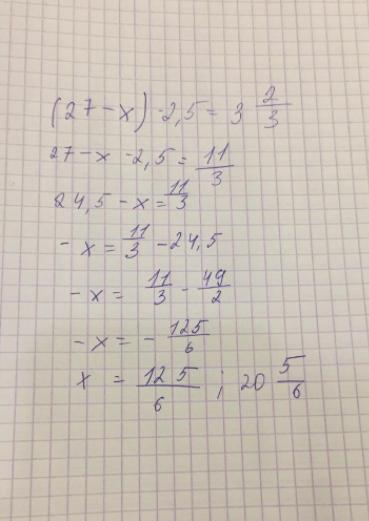 (27-x) -2,5 = 3 2/3
27-x -2,5 = 11/3
24,5 - x = 11/3
- x = 11/3 - 24,5
- x = 11/3 - 49/2
- x = - 125/6
x = 125/6 ; 20 5/6